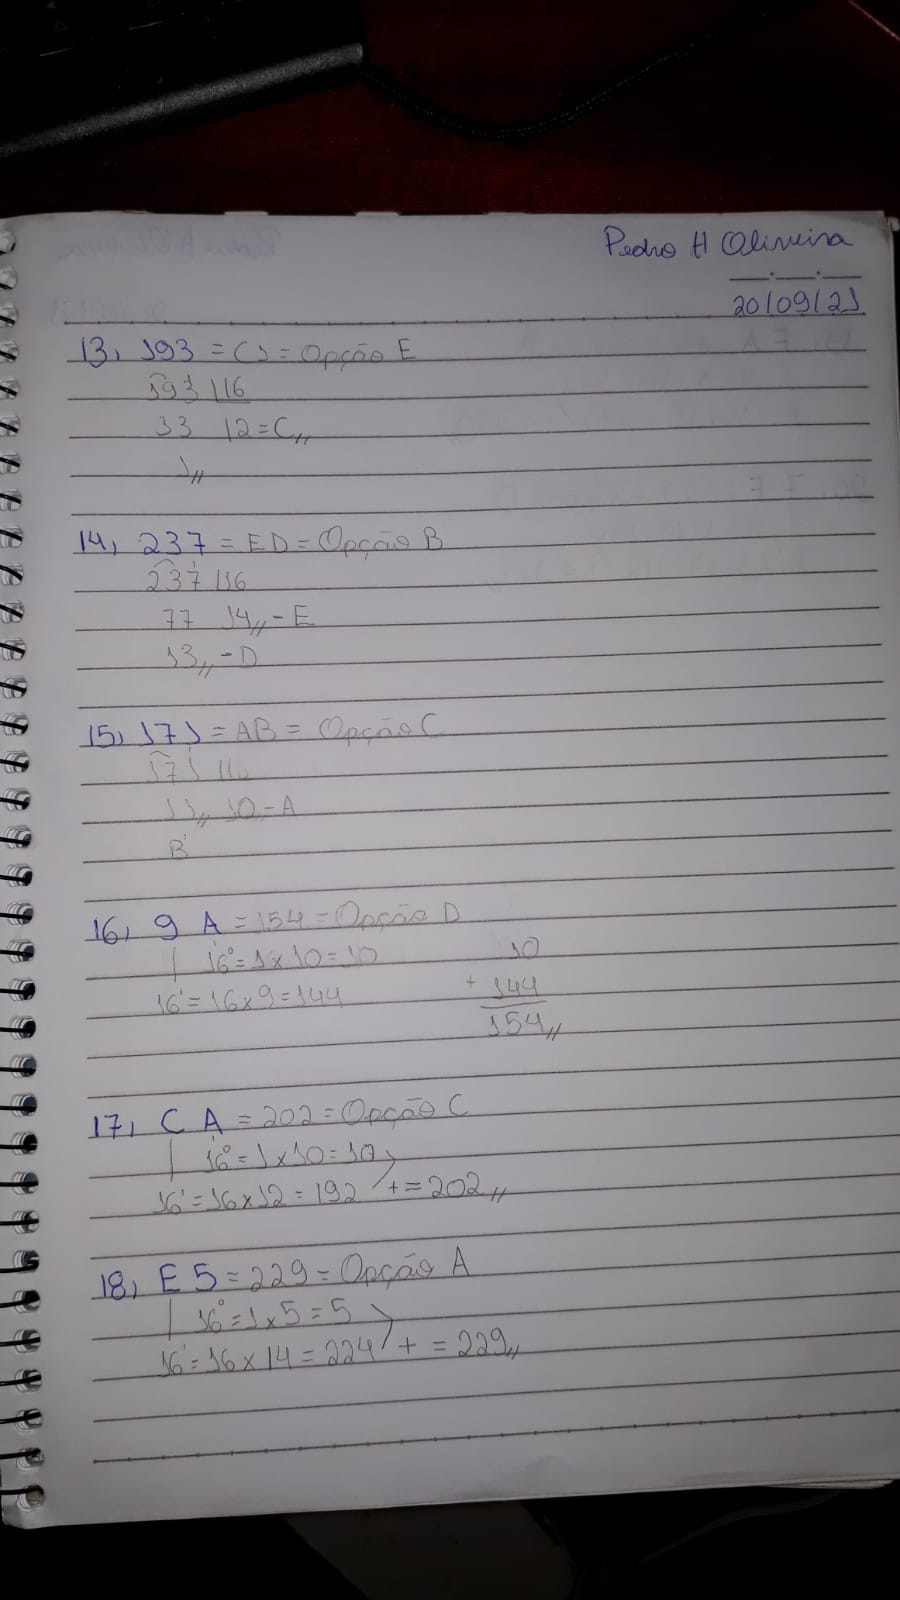 Pedro H Oliveira
20/09/21
13, 193 = C1 = Opção E
193 |16
33 12 = C,,
1,,
14, 237 = ED = Opção B
237 |16
77 14,, - E
13,, - D
15, 171 = AB = Opção C
171 |16
11,, 10 - A
B
16, 9 A = 154 = Opção D
| 16⁰ = 1 x 10 = 10 10
16¹ = 16 x 9 = 144 + 144
154,,
17, C A = 202 = Opção C
| 16⁰ = 1 x 10 = 10
16¹ = 16 x 12 = 192 + = 202,,
18, E 5 = 229 = Opção A
| 16⁰ = 1 x 5 = 5
16¹ = 16 x 14 = 224 + = 229,,